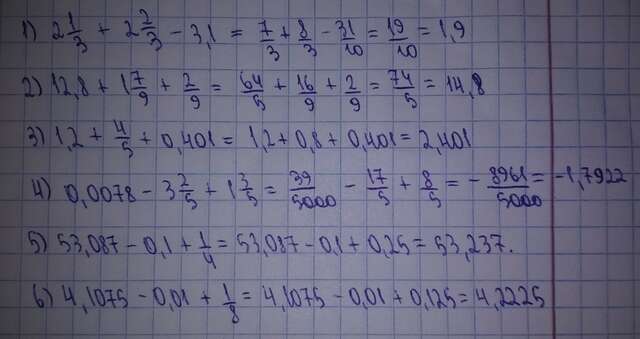 1) 2 1/3 + 2 2/3 - 3,1 = 7/3 + 8/3 - 31/10 = 19/10 = 1,9
2) 12,8 + 1 7/9 + 2/9 = 64/5 + 16/9 + 2/9 = 74/5 = 14,8
3) 1,2 + 4/5 + 0,401 = 1,2 + 0,8 + 0,401 = 2,401
4) 0,0078 - 3 2/5 + 1 3/5 = 39/5000 - 17/5 + 8/5 = - 8961/5000 = -1,7922
5) 53,087 - 0,1 + 1/4 = 53,087 - 0,1 + 0,25 = 53,237.
6) 4,1075 - 0,01 + 1/8 = 4,1075 - 0,01 + 0,125 = 4,2225